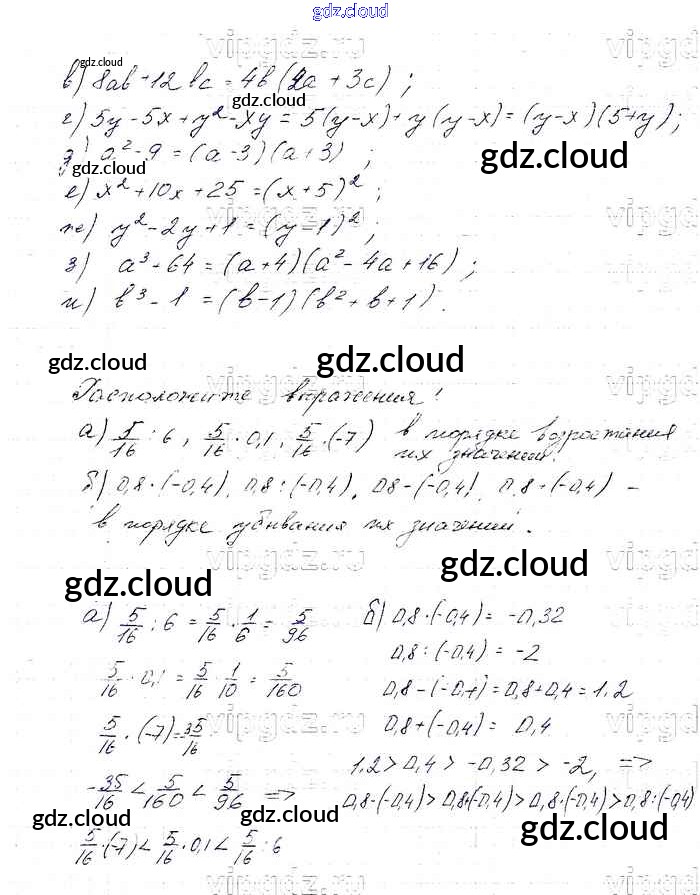 gdz.cloud
vipgdz.ru
в) 8ab + 12bc = 4b(2a + 3c) ;
г) 5y - 5x + y² - xy = 5(y-x) + y(y-x) = (y-x)(5+y);
д) a² - 9 = (a-3)(a+3) ;
е) x² + 10x + 25 = (x+5)² ;
ж) y² - 2y + 1 = (y-1)² ;
з) a³ + 64 = (a+4)(a² - 4a + 16) ;
и) b³ - 1 = (b-1)(b² + b + 1).
gdz.cloud gdz.cloud
Расположите выражения:
а) 5/16 : 6 , 5/16 · 0,1, 5/16 · (-7) в порядке возростания
их значений.
б) 0,8·(-0,4), 0,8 : (-0,4), 0,8-(-0,4), 0,8+(-0,4) -
в порядке убывания их значений.
gdz.cloud gdz.cloud
а) 5/16 : 6 = 5/16 · 1/6 = 5/96
5/16 · 0,1 = 5/16 · 1/10 = 5/160
5/16 · (-7) = 35/16
-35/16 < 5/160 < 5/96 =>
5/16 · (-7) < 5/16 · 0,1 < 5/16 : 6
б) 0,8·(-0,4) = -0,32
0,8 : (-0,4) = -2
0,8-(-0,4) = 0,8+0,4 = 1,2
0,8+(-0,4) = 0,4
1,2 > 0,4 > -0,32 > -2, =>
0,8-(-0,4) > 0,8+(-0,4) > 0,8·(-0,4) > 0,8:(-0,4)
gdz.cloud gdz.cloud gdz.cloud